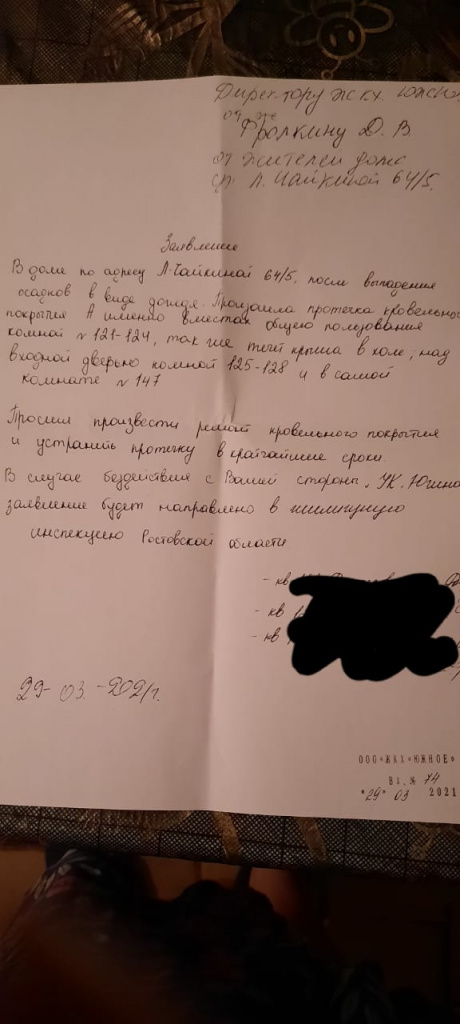 Директору ЖКХ. Южн
Фролкину Д. В.
от жителей дома
ул. Л. Чайкиной 64/5.
Заявление
В доме по адресу Л. Чайкиной 64/5. после выпадения
осадков в виде дождя. Произошла протечка кровельног
покрытия А именно в местах общего пользования
комнот № 121-124, так же течёт крыша в холе, над
входной дверью комнот 125-128 и в самой
комнате № 147
Просим произвести ремонт кровельного покрытия
и устранить протечку в кратчайшие сроки.
В случае бездействия с Вашей стороны, УК. Южная
заявление будет направлено в жилищную
инспекцию Ростовской области
- кв
- кв
- кв
29-03.-2021г.
ООО«ЖКХ«ЮЖНОЕ»
Вх.№ 74
"29" 03 2021